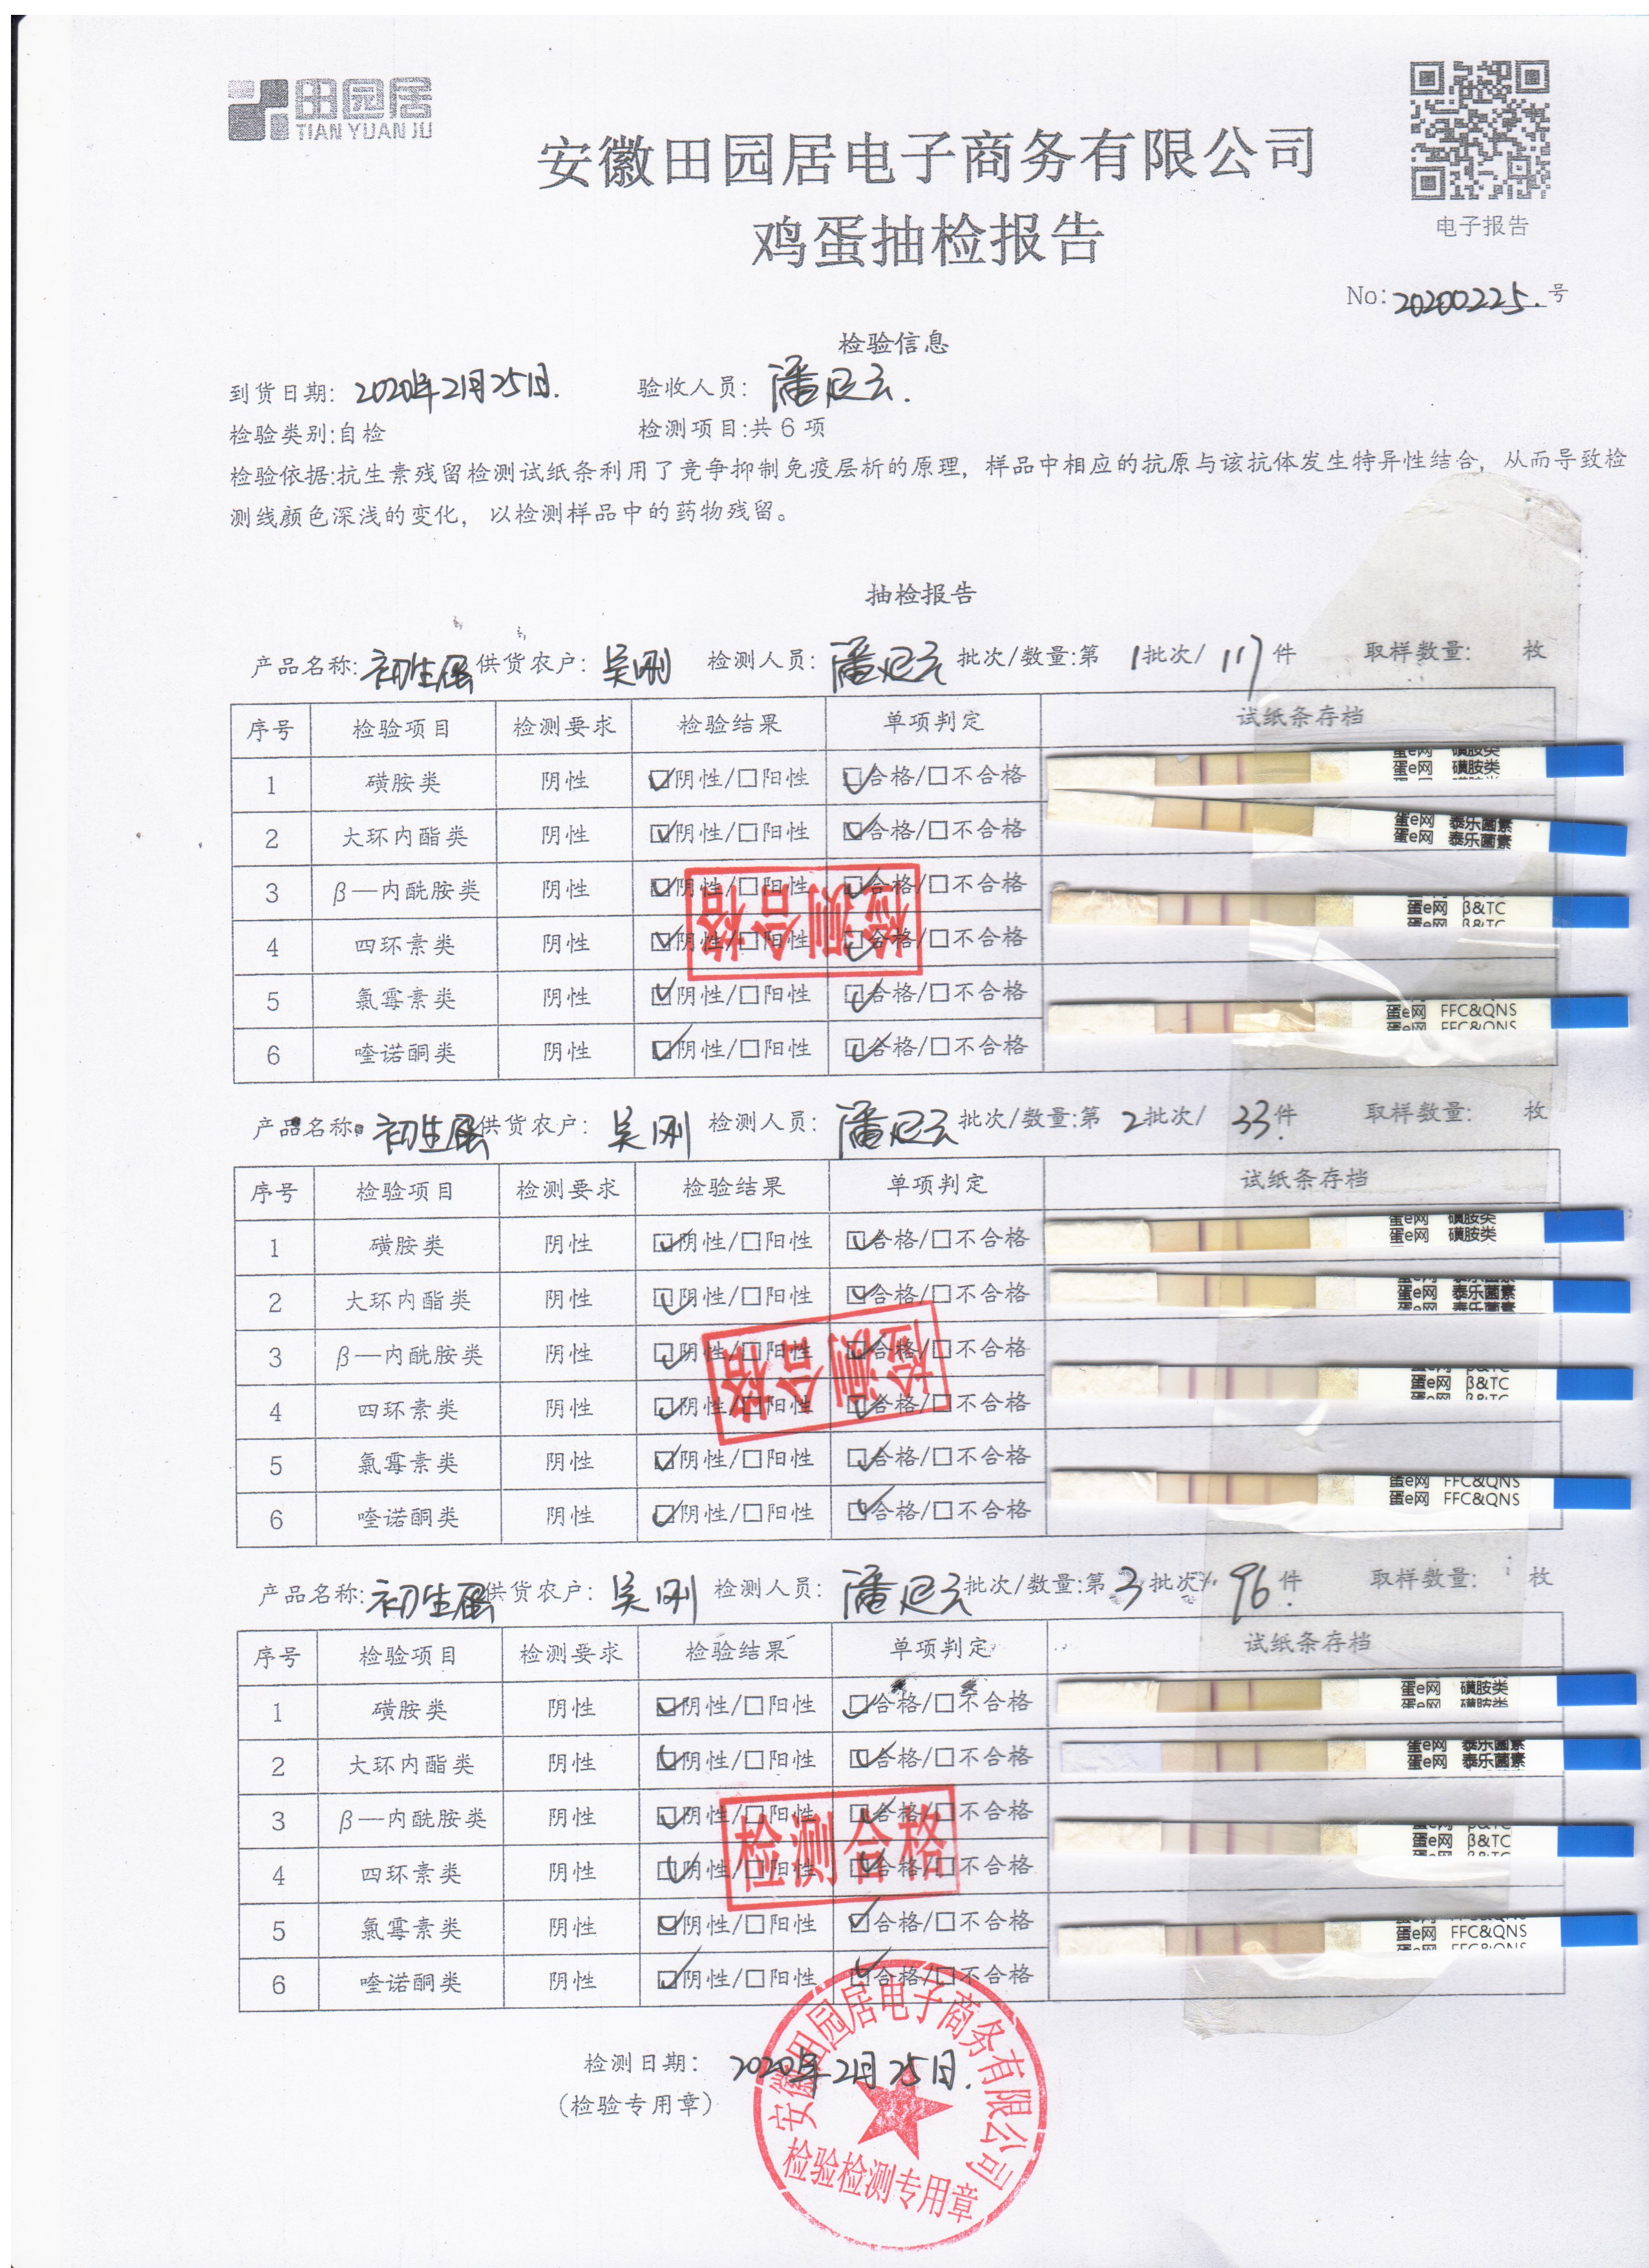 田园居
TIAN YUAN JU
安徽田园居电子商务有限公司
鸡蛋抽检报告
电子报告
No:20200225.号
检验信息
到货日期: 2020年2月25日. 验收人员: 潘
检验类别:自检 检测项目:共 6 项
检验依据:抗生素残留检测试纸条利用了竞争抑制免疫层析的原理, 样品中相应的抗原与该抗体发生特异性结合, 从而导致检
测线颜色深浅的变化, 以检测样品中的药物残留。
抽检报告
产品名称: 初生蛋 供货农户: 吴刚 检测人员: 潘 批次/数量:第 1批次/ 117 件 取样数量: 枚
序号 检验项目 检测要求 检验结果 单项判定 试纸条存档
1 磺胺类 阴性 ☑阴性/□阳性 ☑合格/□不合格 蛋e网 磺胺类
2 大环内酯类 阴性 ☑阴性/□阳性 ☑合格/□不合格 蛋e网 泰乐菌素
3 β—内酰胺类 阴性 ☑阴性/□阳性 ☑合格/□不合格 蛋e网 β&TC
4 四环素类 阴性 ☑阴性/□阳性 ☑合格/□不合格
5 氯霉素类 阴性 ☑阴性/□阳性 ☑合格/□不合格 蛋e网 FFC&QNS
6 喹诺酮类 阴性 ☑阴性/□阳性 ☑合格/□不合格
检测合格
产品名称: 初生蛋 供货农户: 吴刚 检测人员: 潘 批次/数量:第 2批次/ 33件 取样数量: 枚
序号 检验项目 检测要求 检验结果 单项判定 试纸条存档
1 磺胺类 阴性 ☑阴性/□阳性 ☑合格/□不合格 蛋e网 磺胺类
2 大环内酯类 阴性 ☑阴性/□阳性 ☑合格/□不合格 蛋e网 泰乐菌素
3 β—内酰胺类 阴性 ☑阴性/□阳性 ☑合格/□不合格 蛋e网 β&TC
4 四环素类 阴性 ☑阴性/□阳性 ☑合格/□不合格
5 氯霉素类 阴性 ☑阴性/□阳性 ☑合格/□不合格 蛋e网 FFC&QNS
6 喹诺酮类 阴性 ☑阴性/□阳性 ☑合格/□不合格
检测合格
产品名称: 初生蛋 供货农户: 吴刚 检测人员: 潘 批次/数量:第 3批次/ 96件 取样数量: 枚
序号 检验项目 检测要求 检验结果 单项判定 试纸条存档
1 磺胺类 阴性 ☑阴性/□阳性 ☑合格/□不合格 蛋e网 磺胺类
2 大环内酯类 阴性 ☑阴性/□阳性 ☑合格/□不合格 蛋e网 泰乐菌素
3 β—内酰胺类 阴性 ☑阴性/□阳性 ☑合格/□不合格 蛋e网 β&TC
4 四环素类 阴性 ☑阴性/□阳性 ☑合格/□不合格
5 氯霉素类 阴性 ☑阴性/□阳性 ☑合格/□不合格 蛋e网 FFC&QNS
6 喹诺酮类 阴性 ☑阴性/□阳性 ☑合格/□不合格
检测合格
检测日期: 2020年2月25日.
(检验专用章)
安徽田园居电子商务有限公司
检验检测专用章